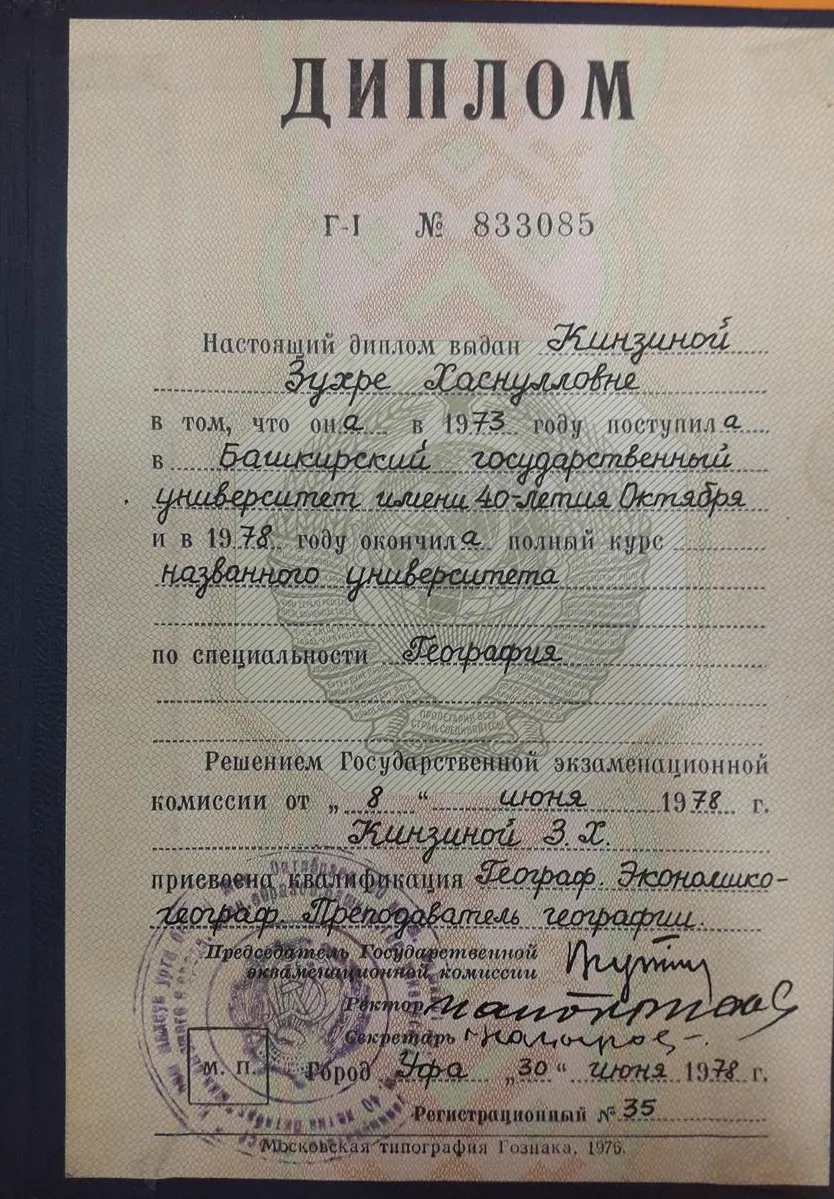 ДИПЛОМ
Г-I № 833085
Настоящий диплом выдан Кинзиной
Зухре Хаснулловне
в том, что она в 1973 году поступила
в Башкирский государственный
университет имени 40-летия Октября
и в 1978 году окончила полный курс
названного университета
по специальности География
Решением Государственной экзаменационной
комиссии от „ 8 “ июня 1978 г.
Кинзиной З. Х.
присвоена квалификация Географ. Экономико-
географ. Преподаватель географии.
Председатель Государственной
экзаменационной комиссии
Ректор
Секретарь
М. П. Город Уфа „30“ июня 1978 г.
Регистрационный № 35
Московская типография Гознака, 1976.